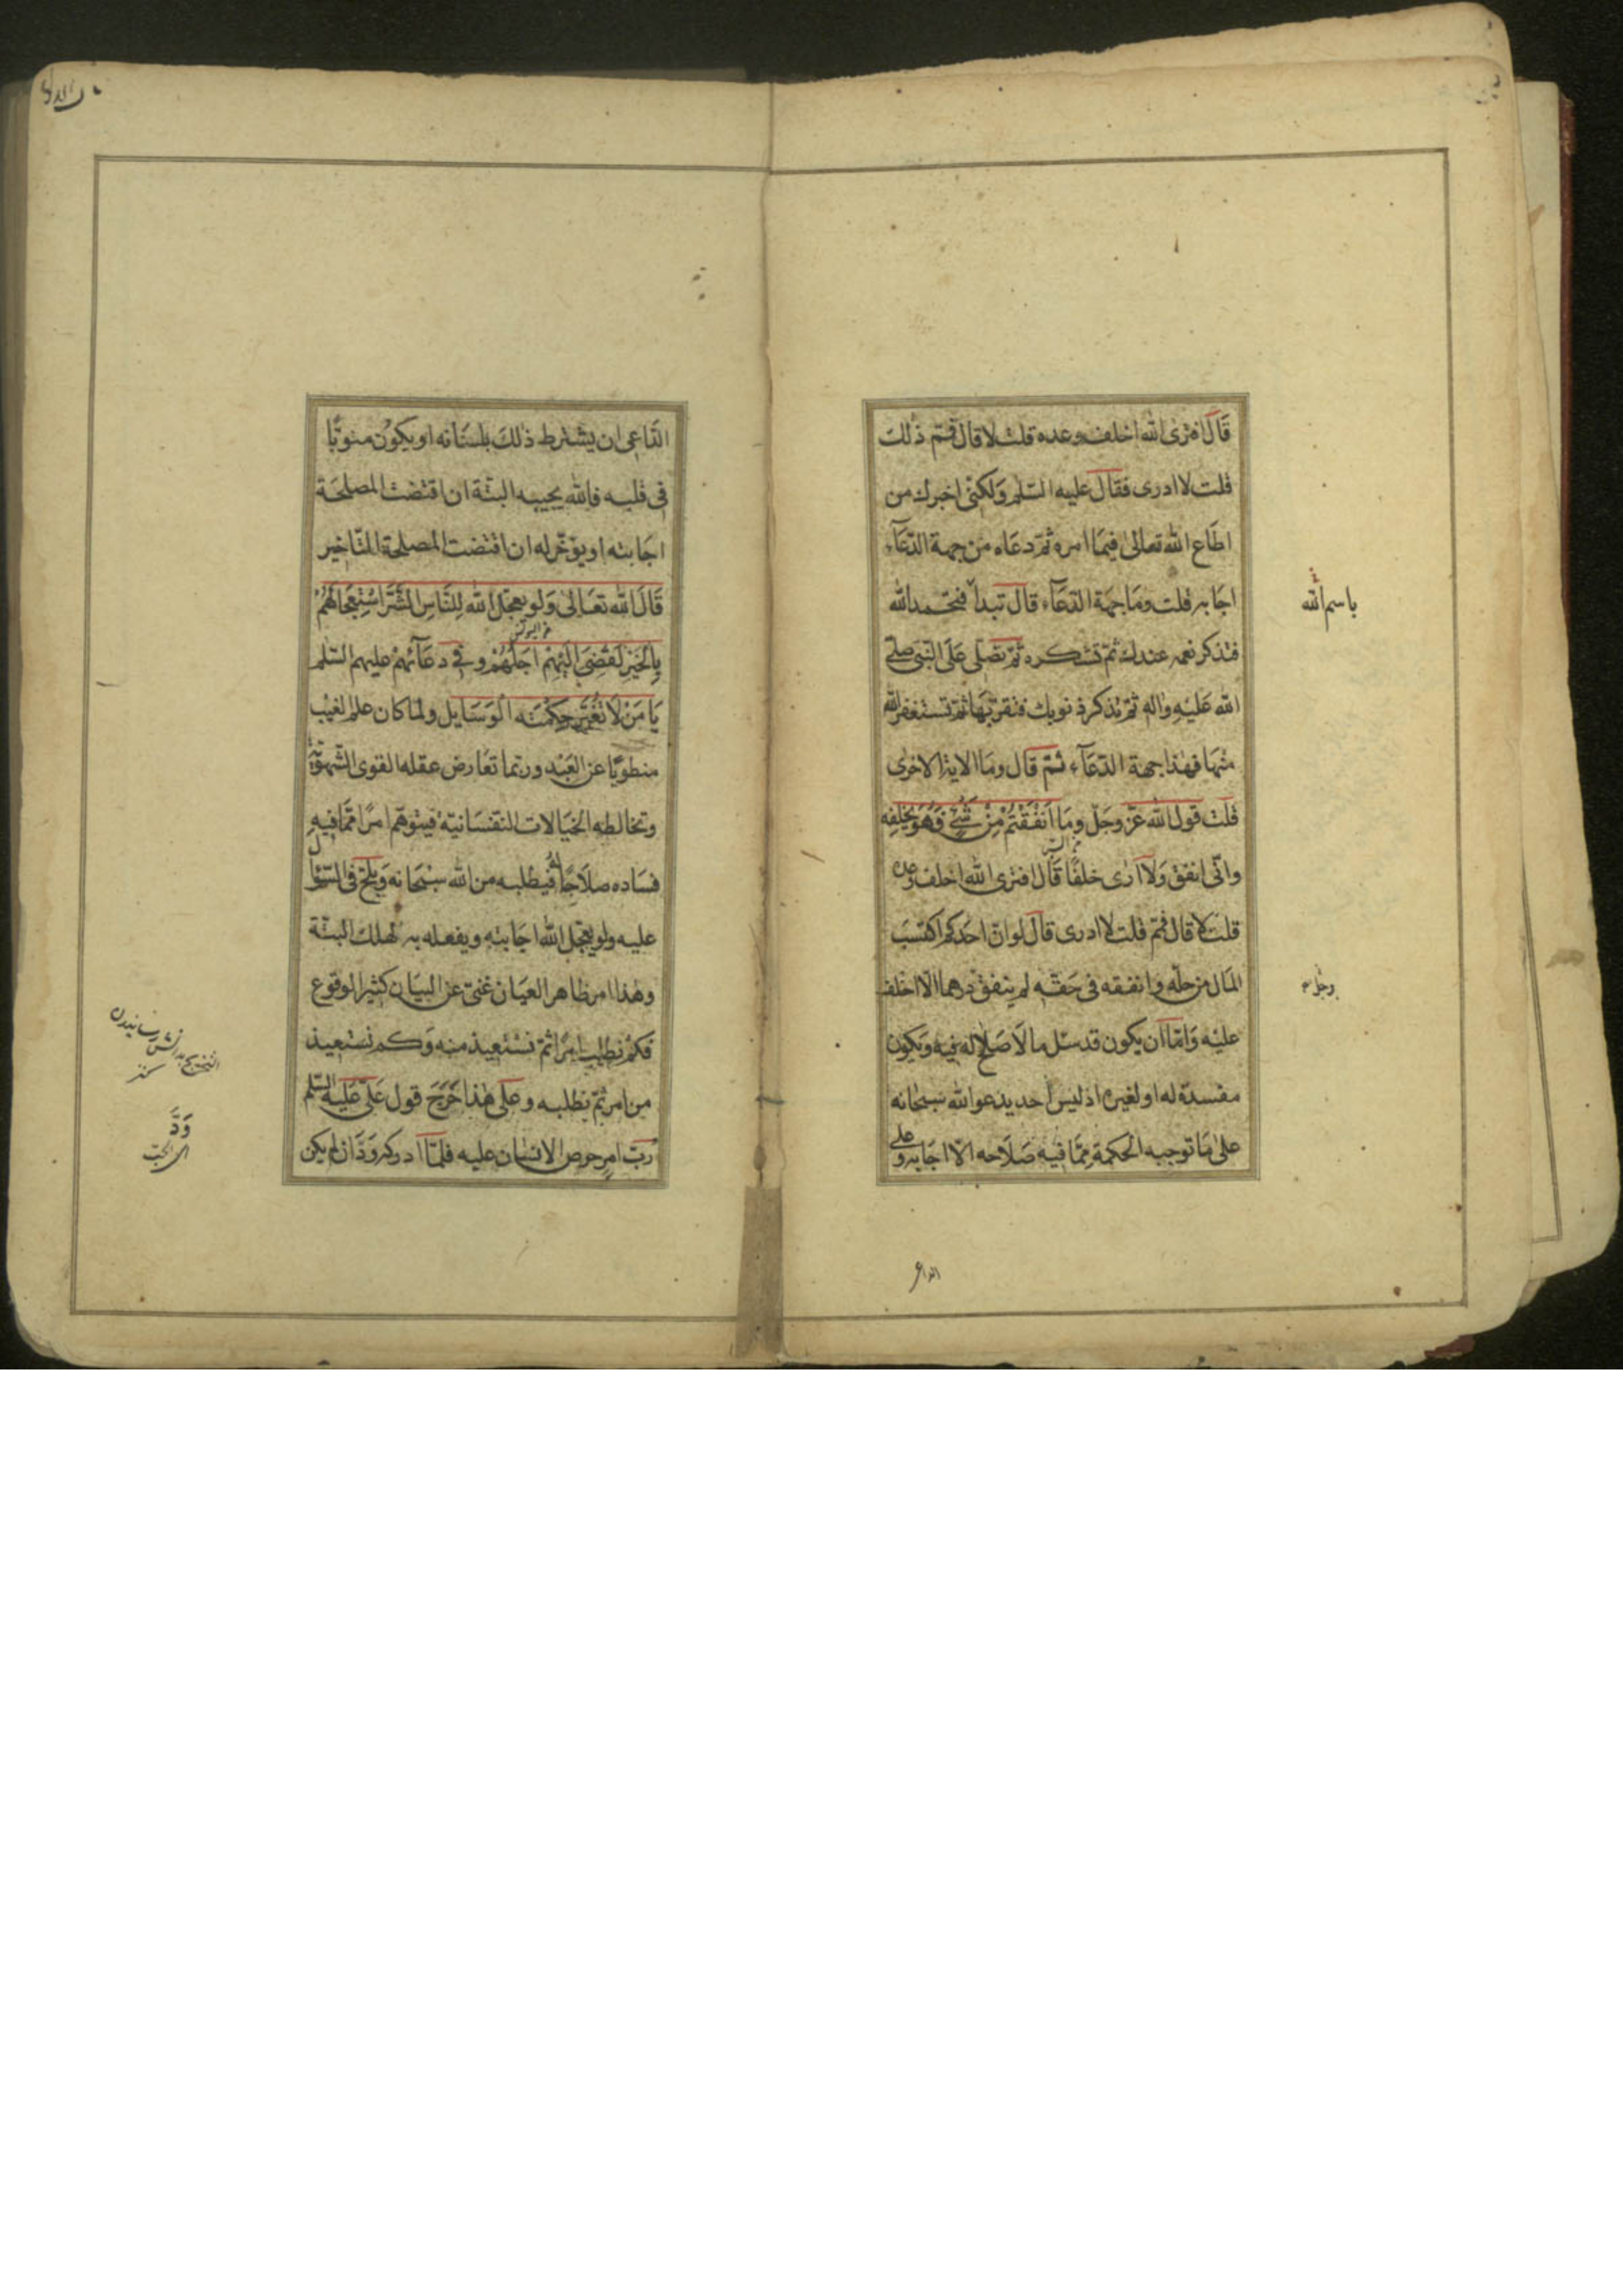 قَالَ افترى الله اخلف وعده قلت لا قال فمّ ذلك
قلت لا ادرى فقال عليه السّلم ولكنّى اخبرك من
اطَاع الله تعالىٰ فيمَا امره ثمّ دعَاه من جهة الدّعَآء
اجَابه قلت ومَا جهة الدّعَآء قال تبدأ فتحمد الله
فتذكر نعمه عندك ثمّ تشكره ثمّ تصلّى عَلَى النّبىّ صلّى
الله عَليْهِ واٰلهِ ثمّ تذكر ذنوبك فتقرّ بهَا ثمّ تستغفر الله
منهَا فهٰذا جهة الدّعَآء ثمّ قال ومَا الاية الاخرى
قلت قول الله عزّ وجَلّ ومَا اَنْفَقْتُمْ مِنْ شَىْءٍ فَهُوَ يُخْلِفُه
وانّى انفق وَلَا ارىٰ خلفًا قَالَ افترى الله اخلف وعده
قلت لا قال فمّ قلت لا ادرى قال لو انّ احَدكم اكتسَبَ
المَال من حلّه وانفقه فى حَقّه لم ينفق درهما الّا اخلف
عليْه وَامّا ان يكون قد سئل ما لَا صَلاح له فيه وَيكون
مفسدة له او لغيره اذ ليس احد يدعو الله سبحَانه
علىٰ مَا توجبه الحكمة ممّا فيه صَلَاحه الّا اجَابه وعلى
باسم الله
الداعى
الدّاعى ان يشترط ذلكَ بلسَانه او يكوُن منويًّا
فى قلبه فالله يجيبه البتّة ان اقتضت المصلحَة
اجَابته او يؤخّر له ان اقتضت المصلحة التّاخير
قَالَ الله تعَالىٰ وَلو يعجّل الله لِلنَّاسِ الشَّرَّ اسْتِعْجَالَهُمْ
بِالْخَيْرِ لَقُضِىَ اِلَيْهِمْ اَجَلُهُمْ وفى دعَآئهمْ عليهم السّلم
يَا مَنْ لَا تُغَيِّرُ حِكْمَتَه الْوَسَايل ولمّا كان علم الغيْب
منطويًا عن العَبْد وربّما تعَارض عقله القوى الشّهويّة
وتخالطه الخيَالات النّفسَانيّة فيتوهّم امرًا ممّا فيهِ
فسَاده صلَاحًا له فيطلبه من الله سبْحَانه وَيلحّ فى السّؤال
عليه ولو يعجّل الله اجَابته ويفعله به لهلك البتّة
وهٰذا امر ظاهر العيَان غنىّ عن البيَان كثير الوقوع
فكمْ نطلب امرًا ثمّ نستعيذ منه وَكم نستعيذ
من امر ثمّ نطلبه وعلى هٰذا خَرَجَ قول عَلىّ عَليه السّلم
رُبّ امرٍ حرص الانسَان عليه فلمّا ادركه وَدّ ان لم يكن
وَدَّ
اى احبّ